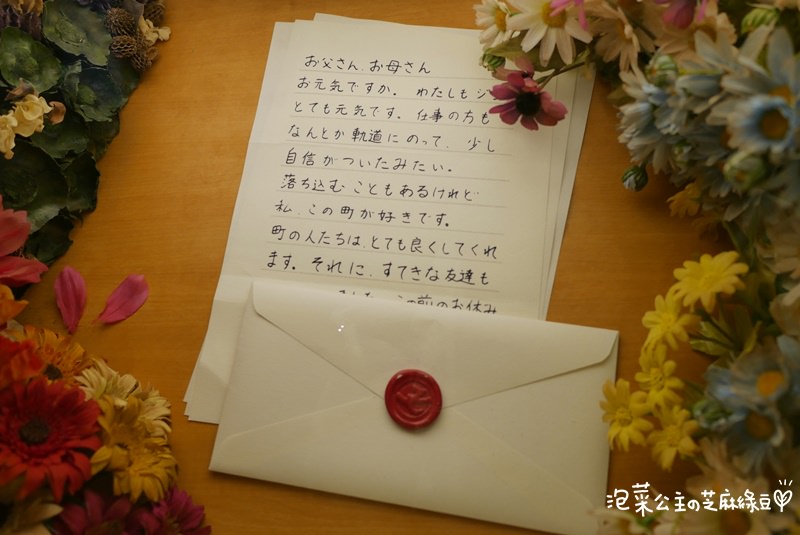 お父さん、お母さん
お元気ですか。わたしもジ
とても元気です。仕事の方も
なんとか軌道にのって、少し
自信がついたみたい。
落ち込むこともあるけれど
私、この町が好きです。
町の人たちは、とても良くしてくれ
ます。それに、すてきな友達も
この前のお休み
泡菜公主の芝麻綠豆